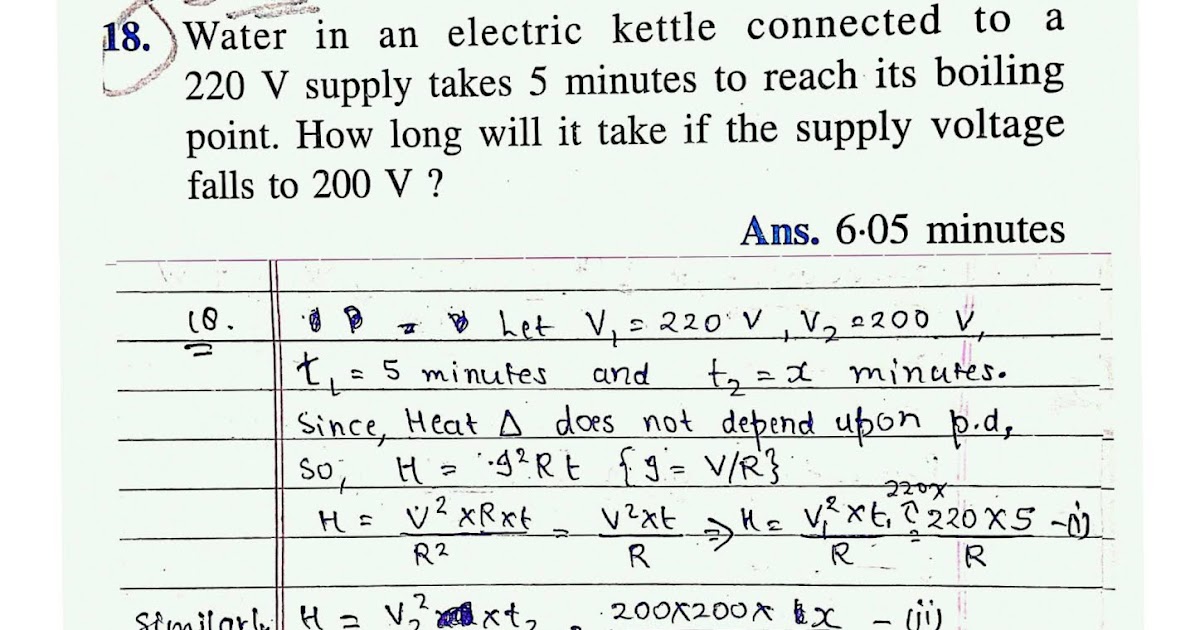 18. Water in an electric kettle connected to a
220 V supply takes 5 minutes to reach its boiling
point. How long will it take if the supply voltage
falls to 200 V ?
Ans. 6·05 minutes
18. Let V₁ = 220 V, V₂ = 200 V,
t₁ = 5 minutes and t₂ = x minutes.
Since, Heat Δ does not depend upon p.d,
So, H = I²Rt {I = V/R}
H = V² x R x t / R² = V² x t / R ⇒ H = V₁² x t₁ / R = 220 x 220 X 5 / R -(i)
Similarly H = V₂² x t₂ = 200X200X x - (ii)